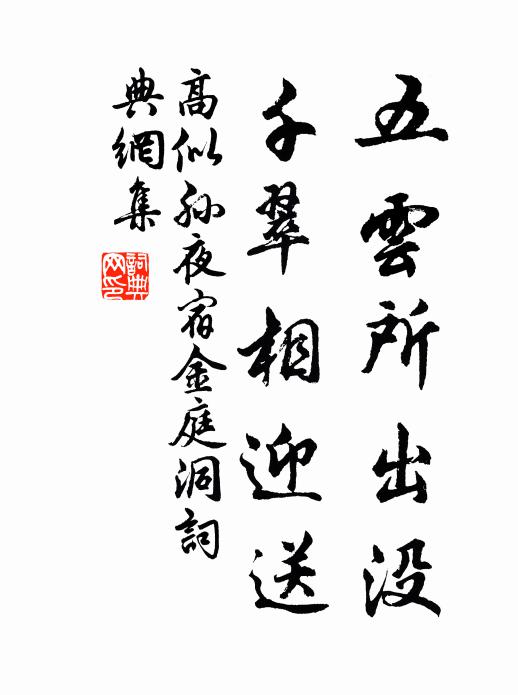 五雲所出没
千翠相迎送
高似孙夜宿金庭洞詞
典網集
詞典網印